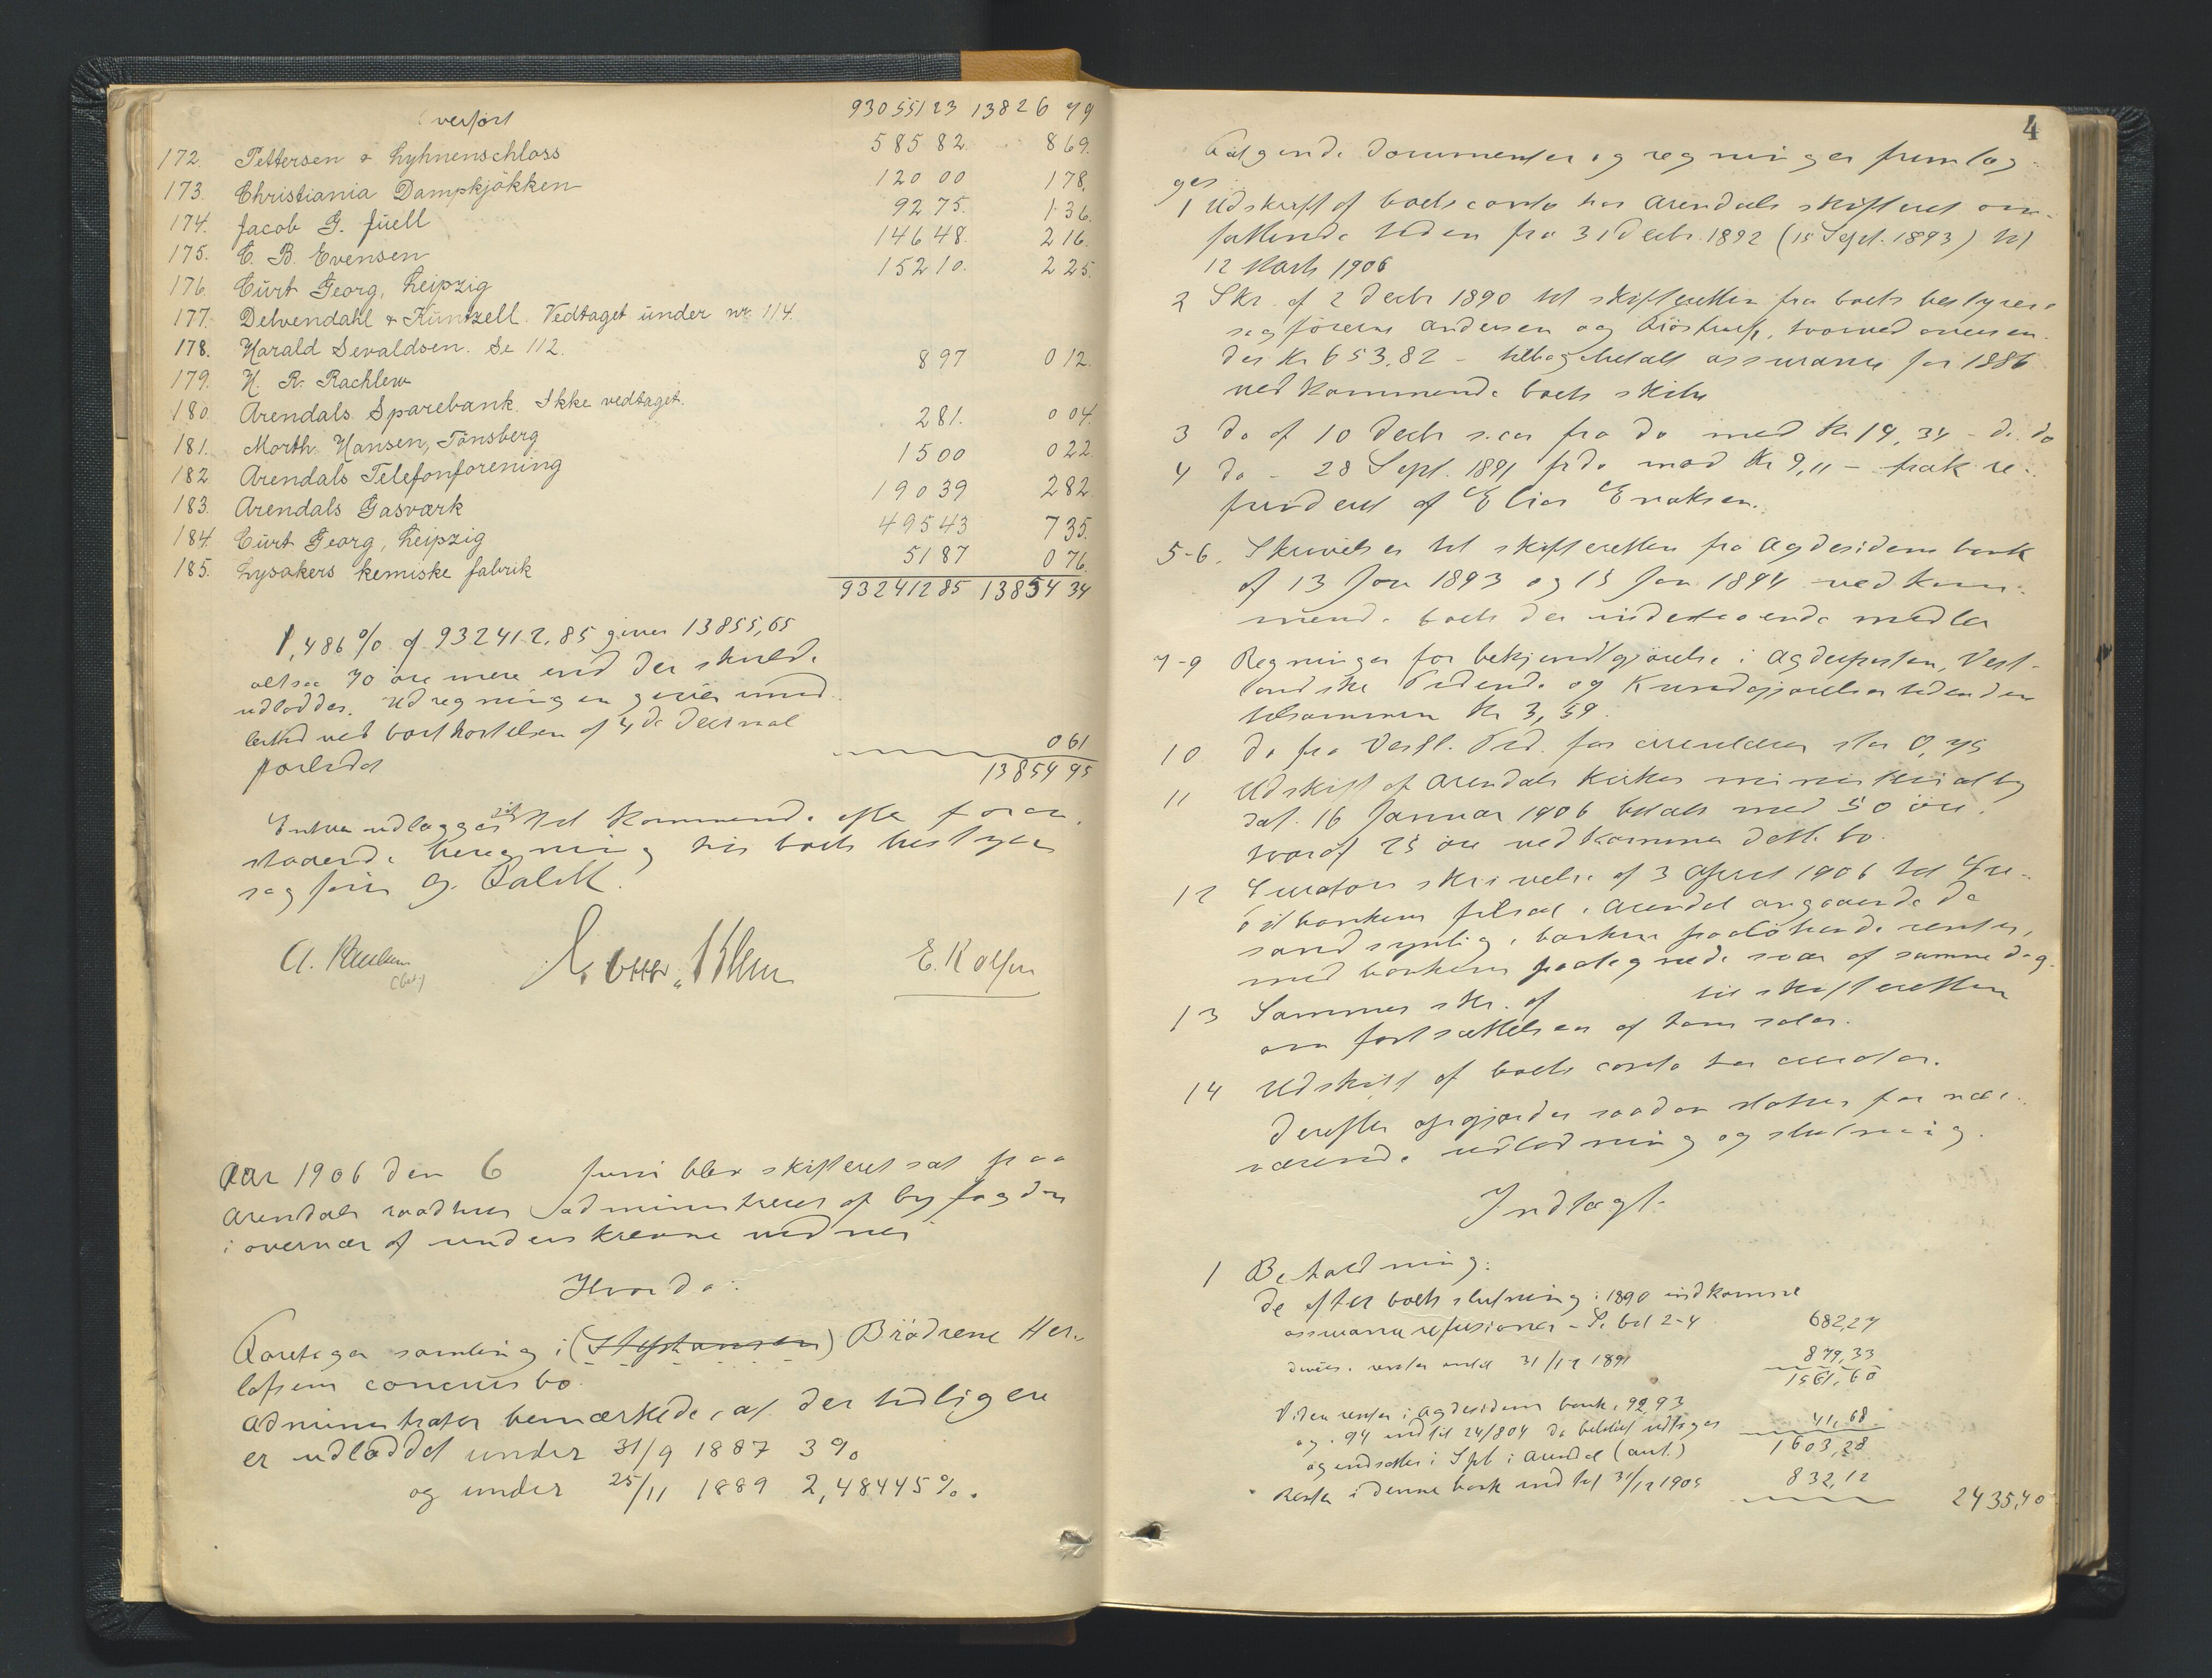 overført 930551 23 13826 79
172. Pettersen & Lyhnenschloss 585 82. 8 69.
173. Christiania Dampkjøkken 120 00 1 78.
174. Jacob G. Juell 92 75. 1 36.
175. C. B. Evensen 146 48. 2 16.
176. Curt Georg, Leipzig 152 10. 2 25.
177. Delvendahl & Küntzell. Vedtaget under nr. 114.
178. Harald Sevaldsen. Se 112.
179. H. R. Rachlew 8 97 0 12.
180. Arendals Sparebank. Ikke vedtaget.
181. Morth. Hansen, Tönsberg 2 81. 0 04.
182 Arendals Telefonforening 15 00 0 22.
183. Arendals Gasværk 190 39 2 82.
184. Curt Georg, Leipzig 495 43 7 35.
185. Lysakers kemiske fabrik 51 87 0 76.
932412 85 13854 34
1,486 % af 932412,85 giver 13855,65
altsaa 70 øre mere end der skulde
udloddes. Udregningen giver imid-
lertid ved bortkastelsen af 4de decimal
forlidet 0 61
13854 95
Enhver udlægges sit tilkommende efter foran-
staaende beregning hos boets bestyrer
sagfører G. Falck.
E. Rolfsen
Aar 1906 den 6 Juni blev skifteret sat paa
Arendals raadhus administreret af byfogden
i overvær af underskrevne vidner
Hvorda:
Foretoges samling i (Stephansen) Brödrene Her-
lofsens concursbo.
Administrator bemærkede, at der tidligere
er udloddet under 31/9 1887 3 %
og under 25/11 1889 2,48445 %.
4
Følgende documenter og regninger fremlag-
ges
1 Udskrift af boets conto hos Arendals skifteret om-
fattende tiden fra 31 Decbr. 1892 (15 Sept. 1893) til
12 Marts 1906
2 Skr. af 2 Decbr 1890 til skifteretten fra boets bestyrere
sagförerne Andersen og , hvorved oversen-
des Kr 653,82 - tilbagebetalt assurance for 1886
vedkommende boets skibe
3 do af 10 Decbr s. aar fra do med Kr 19,34 - do. do
4 do - 28 Sept. 1891 fr do med Kr 9,11 - frak re-
funderet af Elias Eriksen.
5-6. Skrivelser til skifteretten fra Agdesidens bank
af 13 Jan 1893 og 15 Jan 1894 vedkom-
mende boets der indestaaende midler
7-9 Regninger for bekjendtgjörelse i Agdeposten, Vest-
landske Tidende og Kundgjörelsestidenden
tilsammen Kr 3,59.
10 do fra Vestl. Tid. for circulærer stor 0,75
11 Udskrift af Arendals kirkes ministerialbog
dat. 16 Januar 1906 betalt med 50 öre,
hvoraf 25 öre vedkommer dette bo.
12 Curators skrivelse af 3 April 1906 til Pri-
vatbankens filial i Arendal angaaende de
sandsynlig i banken paalöbende renter,
med bankens paategnede svar af samme dag.
13 Sammes skr. af til skifteretten
om fortsættelsen af hans salær.
14 Udskrift af boets conto hos curator.
Derefter opgjordes saadan status for nær-
værende udlodning og slutning.
Indtægt.
1 Beholdning:
De efter boets slutning i 1890 indkomne
assurancerefusioner - Se bil 2-4 682,27
diverse renter indtil 31/12 1891 879,33
1561,60
Viden renter i Agdesidens bank, 92, 93
og 94 indtil 24/8 04 da belöbet udtoges 41,68
og indsattes i Spb i Arendal (ant.) 1603,28
Renter i denne bank indtil 31/12 1905 832,12 2435,40